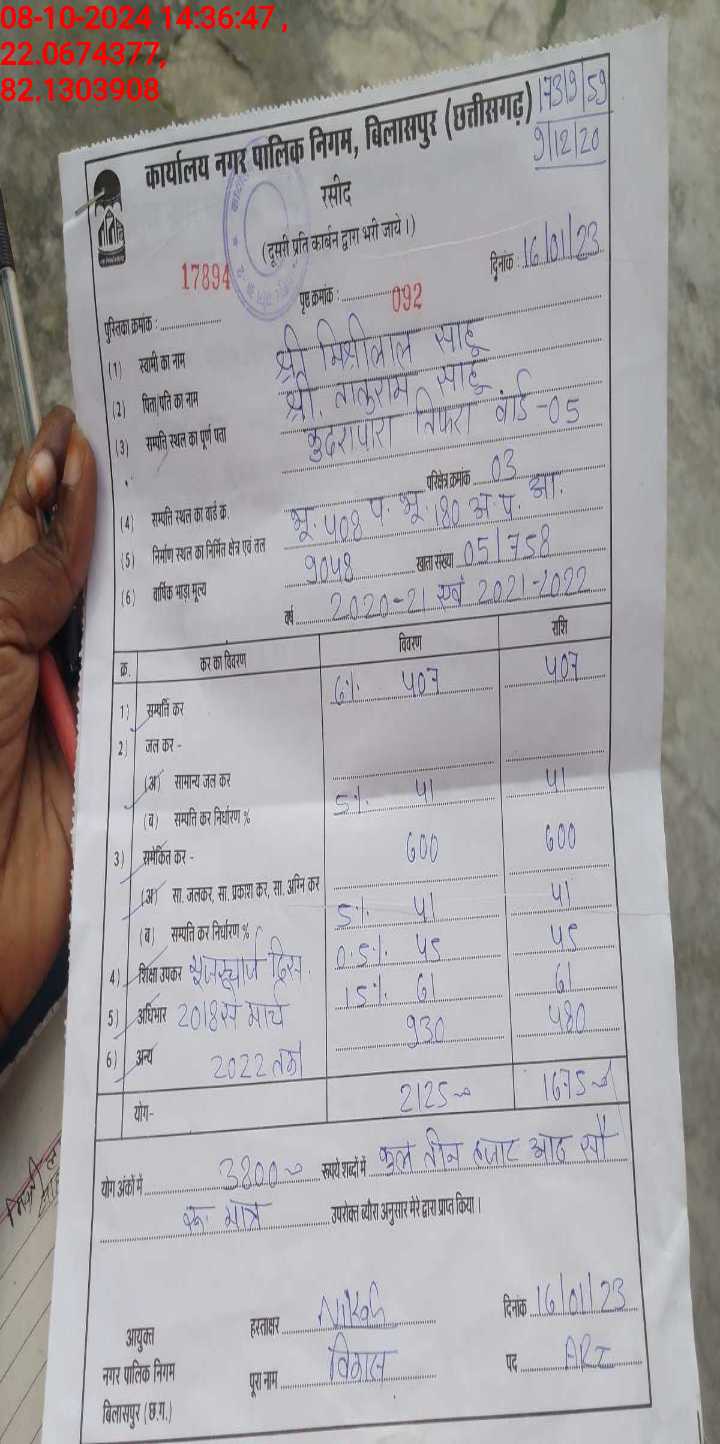 08-10-2024 14:36:47 ,
22.0674377,
82.1303908
कार्यालय नगर पालिक निगम, बिलासपुर (छत्तीसगढ़)
9/12/20
रसीद
(दूसरी प्रति कार्बन द्वारा भरी जाये।)
17894
092
दिनांक : 16/01/23
पुस्तिका क्रमांक : पृष्ठ क्रमांक :
(1) स्वामी का नाम श्री मिश्रीलाल साहू
(2) पिता/पति का नाम श्री. साहू
(3) सम्पत्ति स्थल का पूर्ण पता कुदरापारा तिफरा वार्ड-05
(4) सम्पत्ति स्थल का वार्ड क्र. परिक्षेत्र क्रमांक 03
(5) निर्माण स्थल का निर्मित क्षेत्र एवं तल भू. 408 प. भू. 180 अ. प. आ.
(6) वार्षिक भाड़ा मूल्य 9048 खाता संख्या 051758
वर्ष 2020-21 एवं 2021-2022
क्र. कर का विवरण विवरण राशि
1) सम्पत्ति कर 6%. 407 407
2) जल कर -
(अ) सामान्य जल कर
(ब) सम्पति कर निर्धारण % 5%. 41 41
3) समेकित कर - 600 600
(अ) सा. जलकर, सा. प्रकाश कर, सा. अग्नि कर
(ब) सम्पति कर निर्धारण % 5%. 41 41
4) शिक्षा उपकर 0.5%. 45 45
5) अधिभार 2018 से मार्च 15%. 61 61
6) अन्य 2022 तक 930 480
योग- 2125 1675
योग अंकों में 3800 रूपये शब्दों में कुल तीन हजार आठ सौ
रू. मात्र उपरोक्त ब्यौरा अनुसार मेरे द्वारा प्राप्त किया।
आयुक्त हस्ताक्षर दिनांक 16/01/23
नगर पालिक निगम पूरा नाम विकास पद ARI
बिलासपुर (छ.ग.)